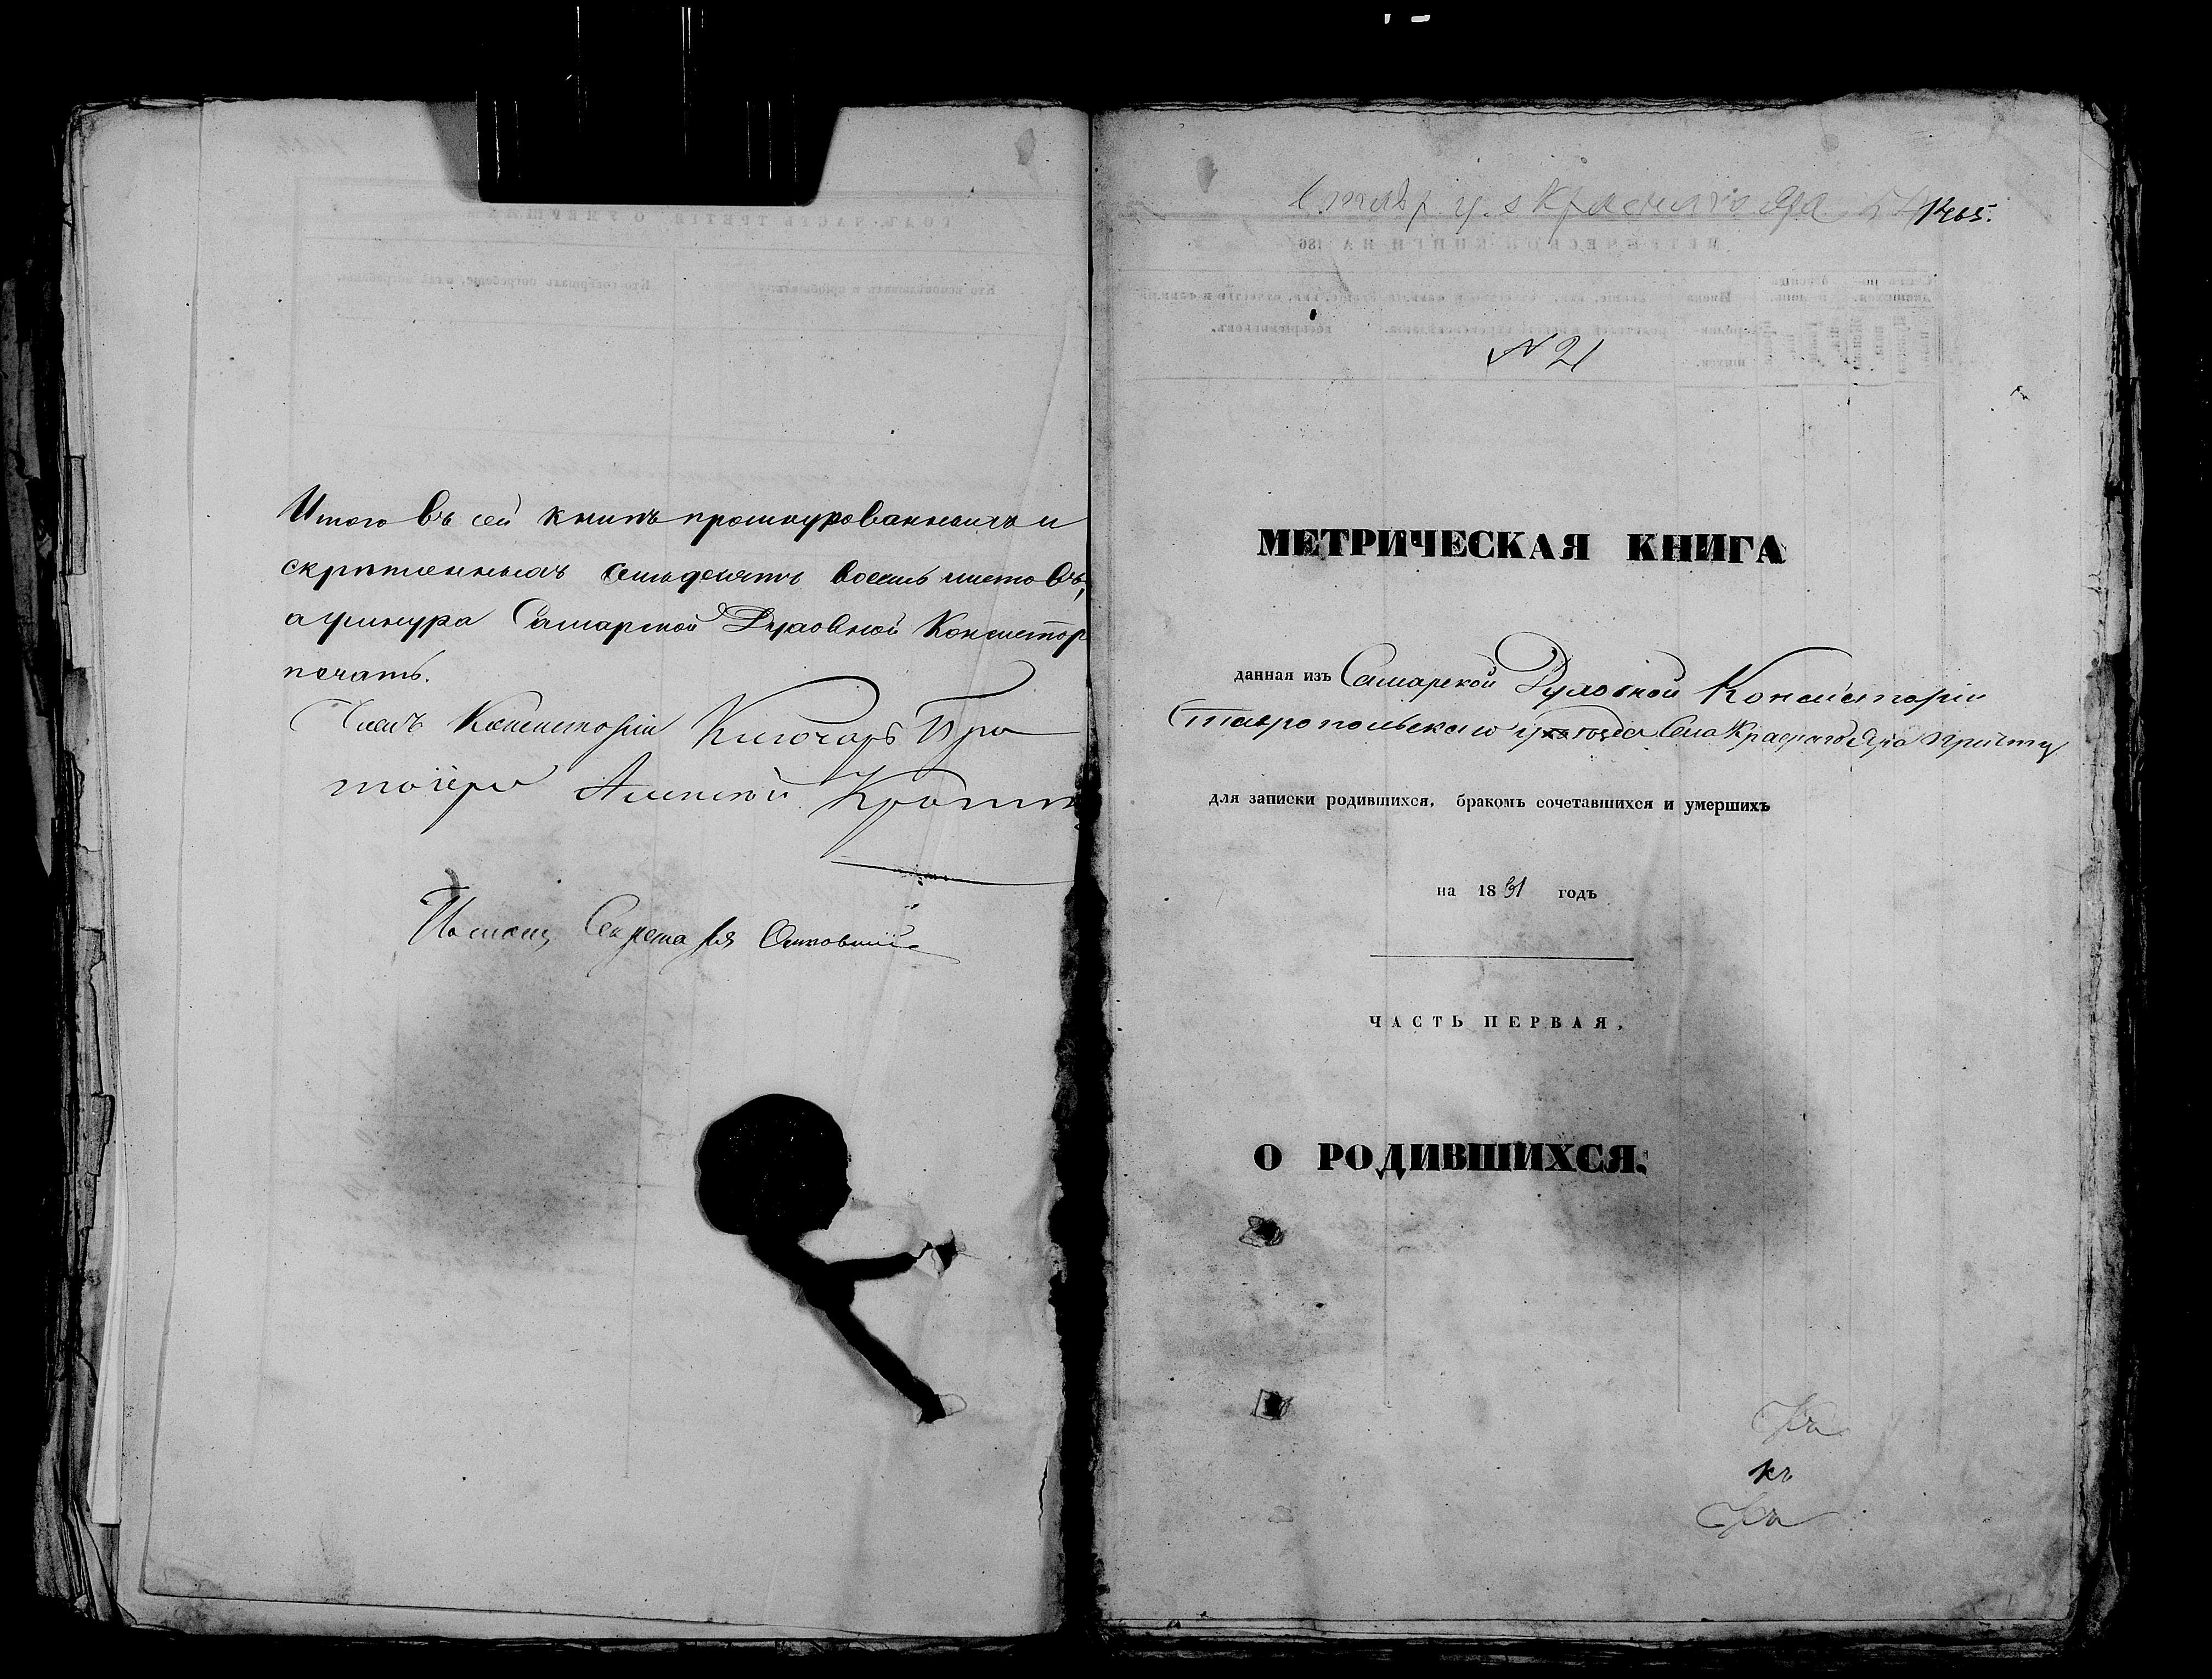 Итого въ сей книгѣ прошнурованныхъ и
скрѣпленныхъ семьдесятъ восемь листовъ,
а у шнура Самарской Духовной Консистор
печать.
Членъ Консисторіи Ключарь Про
тоіерей Алексѣй
Помощ. Секретаря
Ставр. у. с Краснаго Яра 1465.
№ 21
МЕТРИЧЕСКАЯ КНИГА
данная изъ Самарской Духовной Консисторіи
Ставропольскаго уѣзда Села Краснаго Яра причту
для записки родившихся, бракомъ сочетавшихся и умершихъ
на 18 годъ
ЧАСТЬ ПЕРВАЯ,
О РОДИВШИХСЯ.
къ